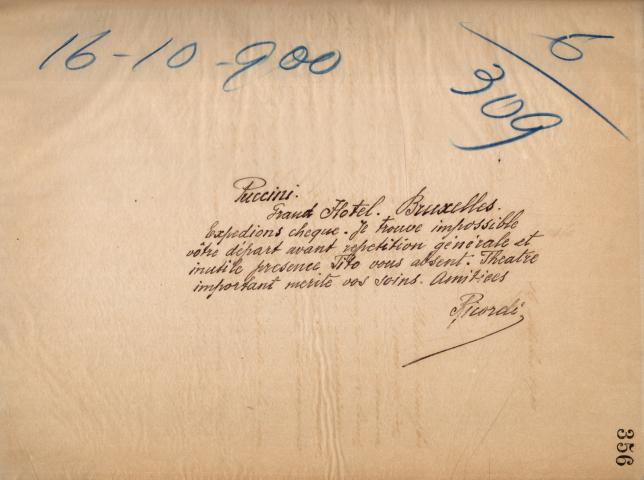 16-10-900
6/309
Puccini.
Grand Hotel. Bruxelles.
Expedions cheque. Je trouve impossible
vôtre départ avant repetition générale et
inutile presence Tito vous absent. Theatre
important merite vos soins. Amitiees
Ricordi
356